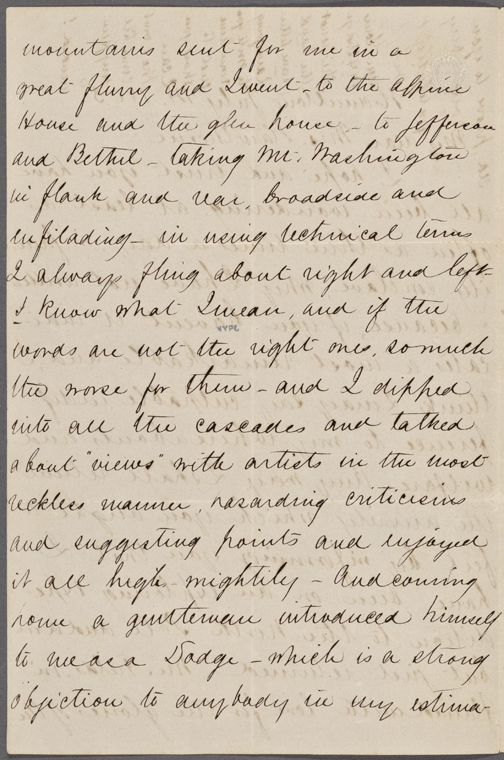 mountains sent for me in a
great flurry and I went - to the Alpine
House and the glen house - to Jefferson
and Bethel - taking Mt. Washington
in flank and rear, broadside and
enfilading - in using technical terms
I always fling about right and left
I know what I mean, and if the
words are not the right ones, so much
the worse for them - and I dipped
into all the cascades and talked
about "views" with artists in the most
reckless manner, hasarding criticisms
and suggesting points and enjoyed
it all high-mightily - And coming
home a gentleman introduced himself
to me as a Dodge - which is a strong
objection to anybody in my estima-
NYPL